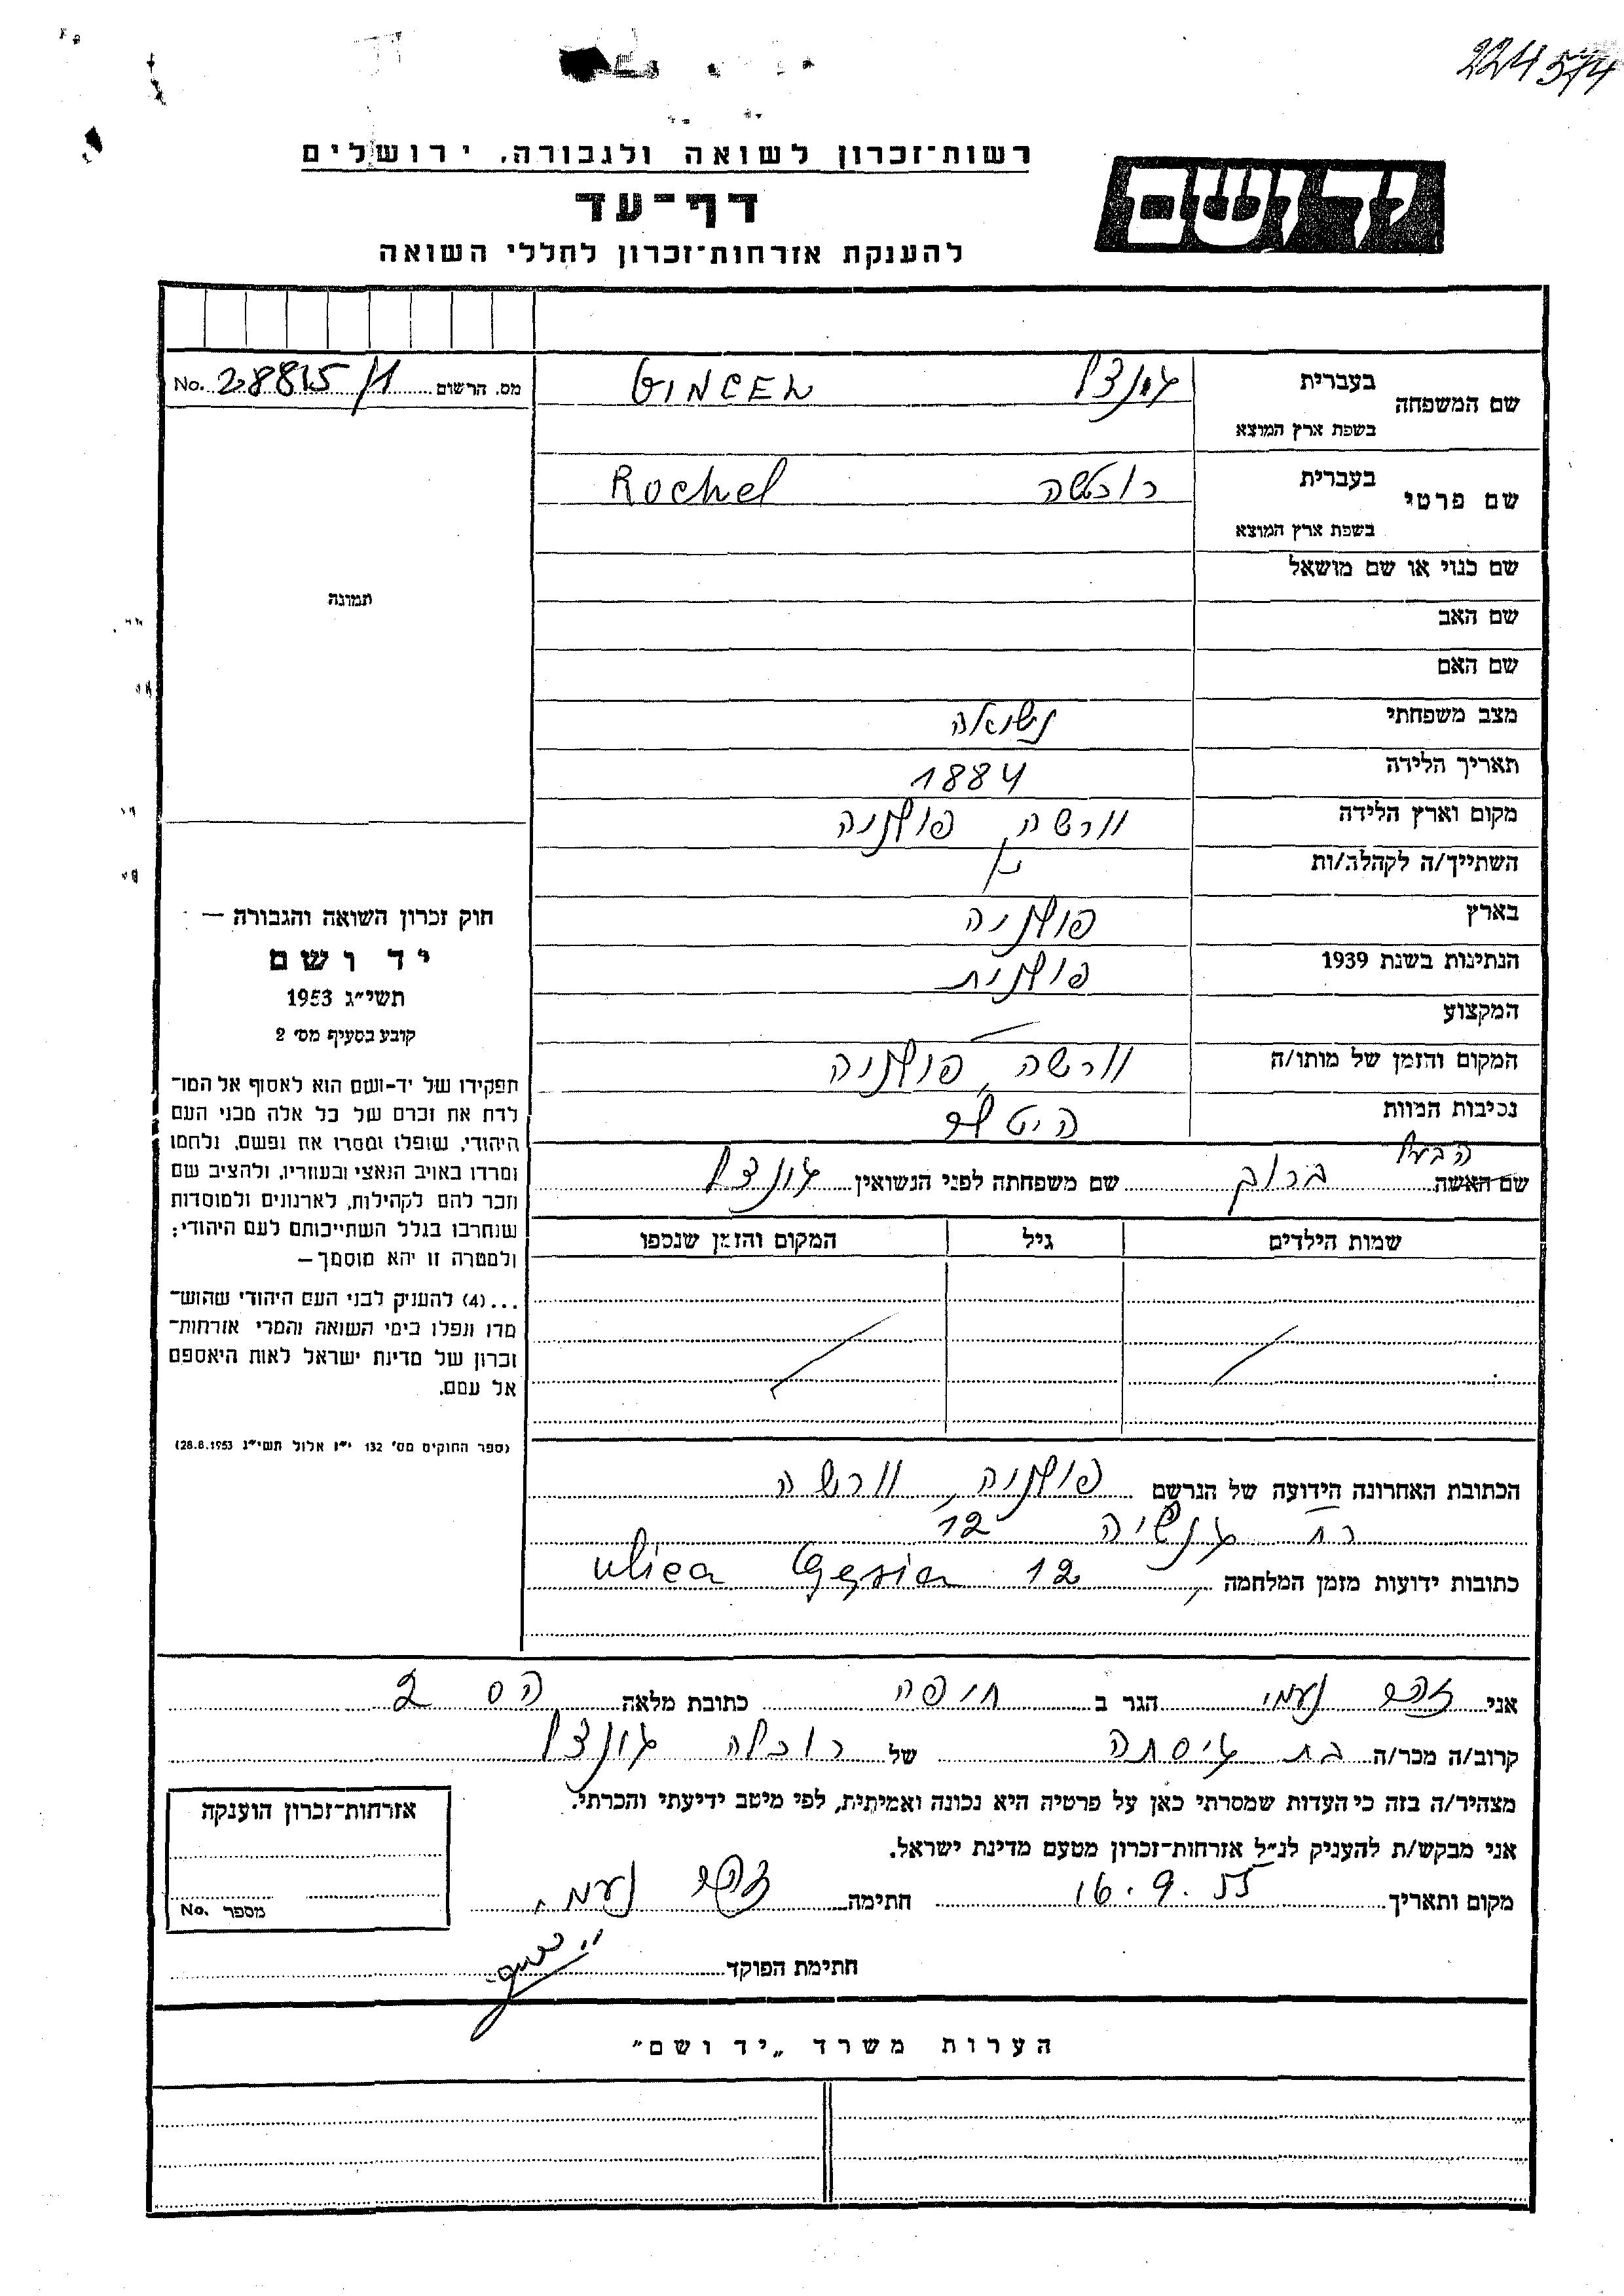 224574
רשות־זכרון לשואה ולגבורה, ירושלים
יד ושם
דף־עד
להענקת אזרחות־זכרון לחללי השואה
שם המשפחה בעברית גונצל GINCEL
בשפת ארץ המוצא
מס. הרשום 28815/1 No.
שם פרטי בעברית Rochel
בשפת ארץ המוצא
שם כנוי או שם מושאל
תמונה
שם האב
שם האם
מצב משפחתי נשואה
תאריך הלידה 1884
מקום וארץ הלידה וורשה, פולניה
השתייך/ה לקהלה/ות
בארץ פולניה
הנתינות בשנת 1939 פולנית
המקצוע
המקום והזמן של מותו/ה וורשה, פולניה
נסיבות המוות היטלר
הבעל
שם האשה ברוך שם משפחתה לפני הנשואין גונצל
שמות הילדים גיל המקום והזמן שנספו
חוק זכרון השואה והגבורה —
יד ושם
תשי״ג 1953
קובע בסעיף מס׳ 2
תפקידו של יד-ושם הוא לאסוף אל המו־
לדת את זכרם של כל אלה מבני העם
היהודי, שנפלו ומסרו את נפשם, נלחמו
ומרדו באויב הנאצי ובעוזריו, ולהציב שם
וזכר להם לקהילות, לארגונים ולמוסדות
שנחרבו בגלל השתייכותם לעם היהודי;
ולמטרה זו יהא מוסמך —
...(4) להעניק לבני העם היהודי שהוש־
מדו ונפלו בימי השואה והמרי אזרחות־
זכרון של מדינת ישראל לאות היאספם
אל עמם.
(ספר החוקים מס׳ 132 י״ז אלול תשי״ג 28.8.1953)
הכתובת האחרונה הידועה של הנרשם פולניה, וורשה
רח גנשיה 12
כתובות ידועות מזמן המלחמה ulica Gęsia 12
אני נעמי הגר ב חיפה כתובת מלאה הס 2
קרוב/ה מכר/ה בת גיסתה של רוכלה גונצל
מצהיר/ה בזה כי העדות שמסרתי כאן על פרטיה היא נכונה ואמיתית, לפי מיטב ידיעתי והכרתי.
אני מבקש/ת להעניק לנ״ל אזרחות־זכרון מטעם מדינת ישראל.
מקום ותאריך 16.9.55 חתימה נעמי
חתימת הפוקד
אזרחות־זכרון הוענקה
מספר No.
הערות משרד „יד ושם״